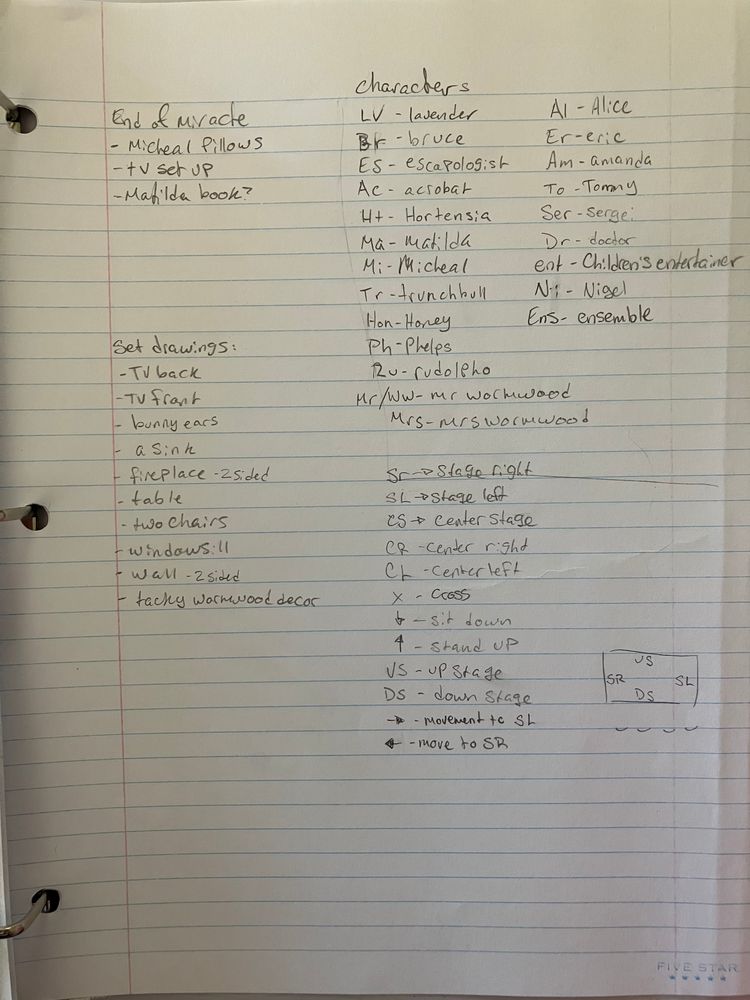 End of miracle
- Micheal Pillows
- tv set up
- Matilda book?
Set drawings:
- TV back
- TV front
- bunny ears
- a sink
- fireplace - 2 sided
- table
- two chairs
- windowsill
- wall - 2 sided
- tacky wormwood decor
characters
LV - lavender
Br - bruce
ES - escapologist
Ac - acrobat
Ht - Hortensia
Ma - Matilda
Mi - Micheal
Tr - trunchbull
Hon - Honey
Ph - Phelps
Ru - rudolpho
Mr/WW - mr wormwood
Mrs - mrs wormwood
Al - Alice
Er - eric
Am - amanda
To - Tommy
Ser - Sergei
Dr - doctor
ent - Children's entertainer
Ni - Nigel
Ens - ensemble
Sr → Stage right
SL → Stage left
CS → Center Stage
CR - center right
CL - Center left
x - Cross
↓ - sit down
↑ - stand up
US - up stage
DS - down stage
→ - movement to SL
← - move to SR
US
SR SL
DS
FIVE STAR